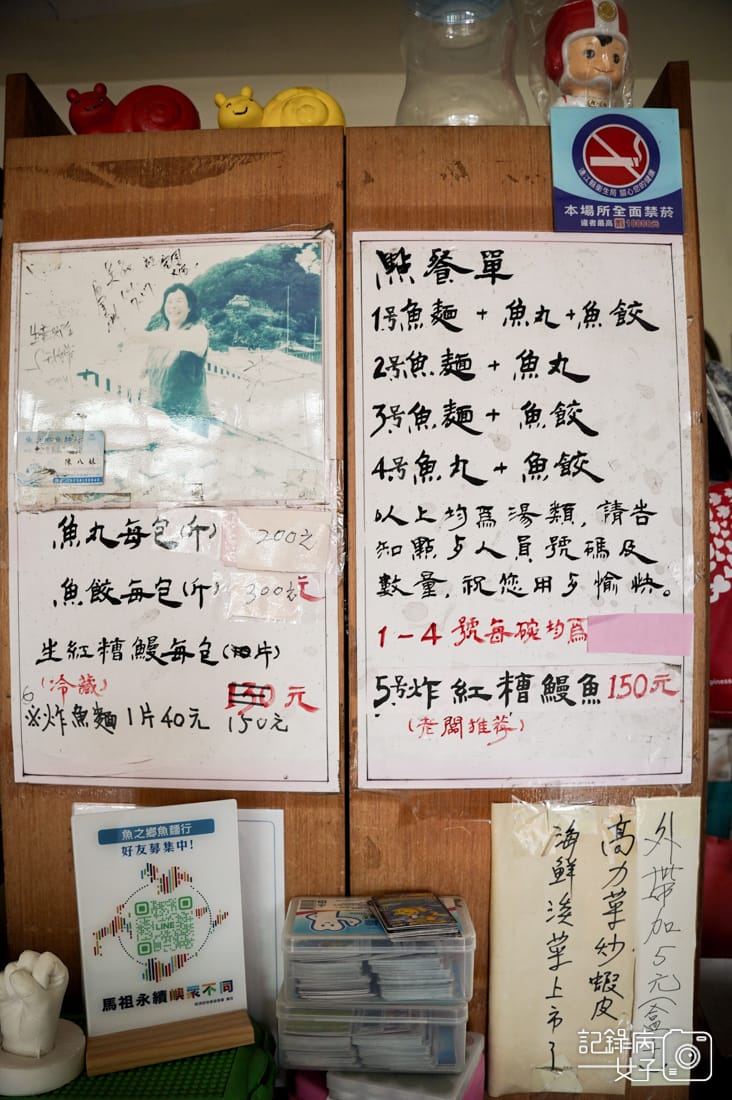 連江縣衛生局 關心您的健康
本場所全面禁菸
違者最高罰10000元
點餐單
1号魚麵 + 魚丸+魚餃
2号魚麵 + 魚丸
3号魚麵 + 魚餃
4号魚丸 + 魚餃
以上均為湯類,請告
知點歺人員號碼及
數量,祝您用歺愉快。
1-4 號每碗均爲
5号炸紅糟鰻魚150元
(老闆推荐)
陳八妹
魚丸每包(斤) 200元
魚餃每包(斤) 300元
生紅糟鰻每包(片)
(冷藏) 130元
※炸魚麵1片40元 150元
魚之鄉魚麵行
好友募集中!
LINE
馬祖永續嶼眾不同
外帶加5元(盒
高力菜炒蝦皮
海鮮淡菜上市了
記錄病
女子